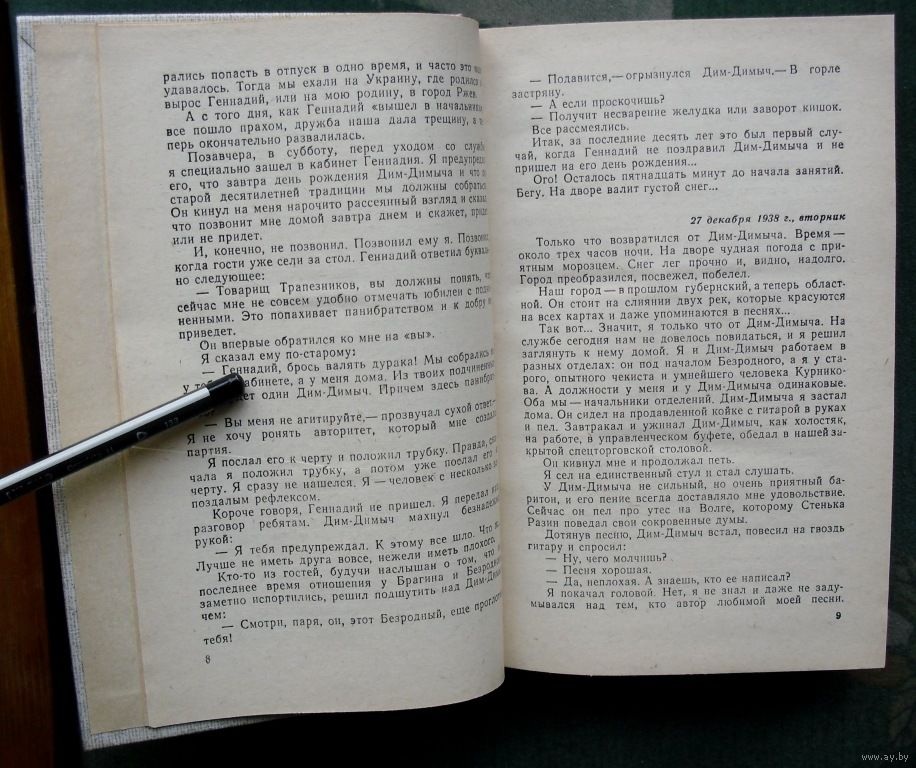 рались попасть в отпуск в одно время, и часто это
удавалось. Тогда мы ехали на Украину, где родился и
вырос Геннадий, или на мою родину, в город Ржев.
А с того дня, как Геннадий «вышел в начальники»
все пошло прахом, дружба наша дала трещину, а
перь окончательно развалилась.
Позавчера, в субботу, перед уходом со службы
я специально зашел в кабинет Геннадия. Я предупредил
его, что завтра день рождения Дим-Димыча и что по
старой десятилетней традиции мы должны собраться
Он кинул на меня нарочито рассеянный взгляд и сказал
что позвонит мне домой завтра днем и скажет, придет
или не придет.
И, конечно, не позвонил. Позвонил ему я. Позвонил
когда гости уже сели за стол. Геннадий ответил буквально
но следующее:
— Товарищ Трапезников, вы должны понять, что
сейчас мне не совсем удобно отмечать юбилеи с подчи
ненными. Это попахивает панибратством и к добру не
приведет.
Он впервые обратился ко мне на «вы».
Я сказал ему по-старому:
— Геннадий, брось валять дурака! Мы собрались не
у кабинете, а у меня дома. Из твоих подчиненных
один Дим-Димыч. Причем здесь панибрат
— Вы меня не агитируйте,— прозвучал сухой ответ.—
Я не хочу ронять авторитет, который мне создала
партия.
Я послал его к черту и положил трубку. Правда, сна
чала я положил трубку, а потом уже послал его к
черту. Я сразу не нашелся. Я — человек с несколько за
поздалым рефлексом.
Короче говоря, Геннадий не пришел. Я передал наш
разговор ребятам. Дим-Димыч махнул безнадежно
рукой:
— Я тебя предупреждал. К этому все шло. Что ж
Лучше не иметь друга вовсе, нежели иметь плохого.
Кто-то из гостей, будучи наслышан о том, что в
последнее время отношения у Брагина и Безродного
заметно испортились, решил подшутить над Дим-Димы
чем:
— Смотри, паря, он, этот Безродный, еще проглотит
тебя!
8
— Подавится,— огрызнулся Дим-Димыч.— В горле
застряну.
— А если проскочишь?
— Получит несварение желудка или заворот кишок.
Все рассмеялись.
Итак, за последние десять лет это был первый слу-
чай, когда Геннадий не поздравил Дим-Димыча и не
пришел на его день рождения...
Ого! Осталось пятнадцать минут до начала занятий.
Бегу. На дворе валит густой снег...
27 декабря 1938 г., вторник
Только что возвратился от Дим-Димыча. Время —
около трех часов ночи. На дворе чудная погода с при-
ятным морозцем. Снег лег прочно и, видно, надолго.
Город преобразился, посвежел, побелел.
Наш город — в прошлом губернский, а теперь област-
ной. Он стоит на слиянии двух рек, которые красуются
на всех картах и даже упоминаются в песнях...
Так вот... Значит, я только что от Дим-Димыча. На
службе сегодня нам не довелось повидаться, и я решил
заглянуть к нему домой. Я и Дим-Димыч работаем в
разных отделах: он под началом Безродного, а я у ста-
рого, опытного чекиста и умнейшего человека Курнико-
ва. А должности у меня и у Дим-Димыча одинаковые.
Оба мы — начальники отделений. Дим-Димыча я застал
дома. Он сидел на продавленной койке с гитарой в руках
и пел. Завтракал и ужинал Дим-Димыч, как холостяк,
на работе, в управленческом буфете, обедал в нашей за-
крытой спецторговской столовой.
Он кивнул мне и продолжал петь.
Я сел на единственный стул и стал слушать.
У Дим-Димыча не сильный, но очень приятный ба-
ритон, и его пение всегда доставляло мне удовольствие.
Сейчас он пел про утес на Волге, которому Стенька
Разин поведал свои сокровенные думы.
Дотянув песню, Дим-Димыч встал, повесил на гвоздь
гитару и спросил:
— Ну, чего молчишь?
— Песня хорошая.
— Да, неплохая. А знаешь, кто ее написал?
Я покачал головой. Нет, я не знал и даже не заду-
мывался над тем, кто автор любимой моей песни.
9
www.ay.by